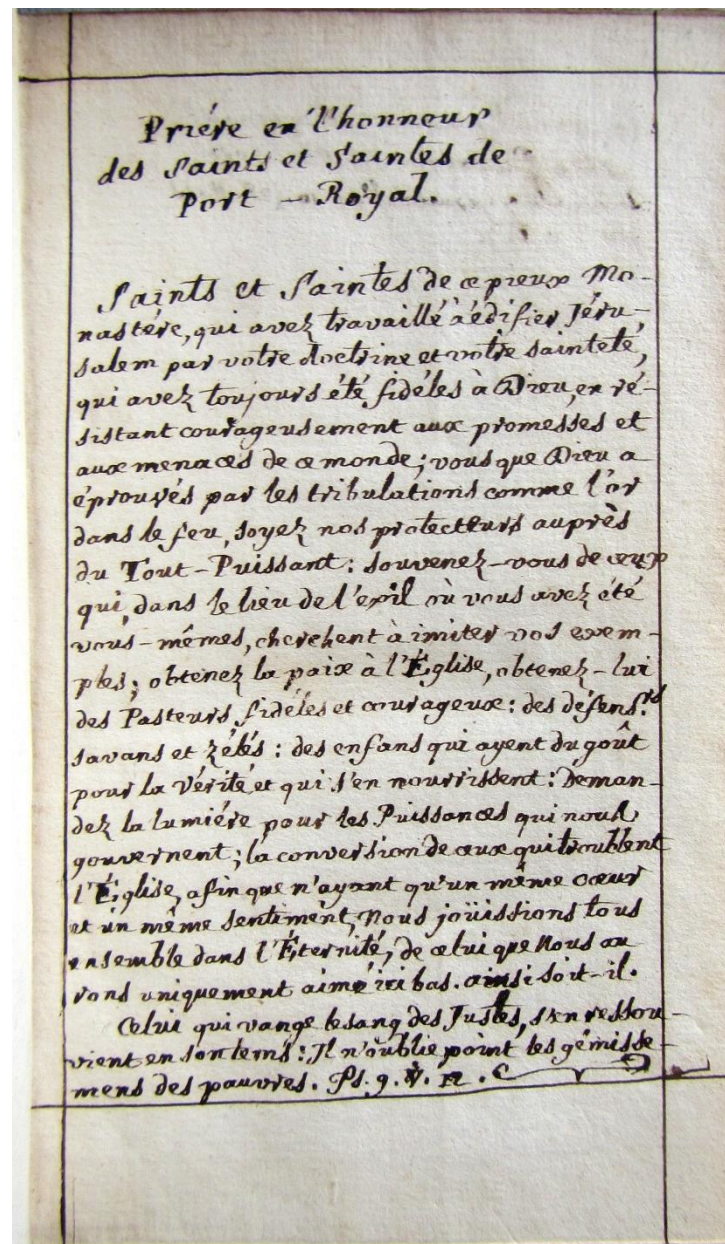 Priére en l'honneur
des Saints et Saintes de
Port - Royal.
Saints et Saintes de ce pieux Mo-
nastére, qui avez travaillé à édifier Jéru-
salem par votre doctrine et votre sainteté,
qui avez toujours été fidéles à Dieu, en ré-
sistant courageusement aux promesses et
aux menaces de ce monde; vous que Dieu a
éprouvés par les tribulations comme l'or
dans le feu, soyez nos protecteurs auprès
du Tout-Puissant: souvenez-vous de ceux
qui, dans le lieu de l'exil où vous avez été
vous-mêmes, cherchent à imiter vos exem-
ples; obtenez la paix à l'Église, obtenez-lui
des Pasteurs fidéles et courageux: des défens.rs
savans et zélés: des enfans qui ayent du goût
pour la vérité et qui s'en nourrissent: Deman-
dez la lumiére pour les Puissances qui nous
gouvernent; la conversion de ceux qui troublent
l'Église, afin que n'ayant qu'un même cœur
et un même sentiment, Nous joüissions tous
ensemble dans l'Éternité, de celui que Nous au
rons uniquement aimé ici bas. ainsi soit-il.
Celui qui vange le sang des Justes, s'en ressou-
vient en son tems: Il n'oublie point les gémisse-
mens des pauvres. Ps. 9. v. 12.